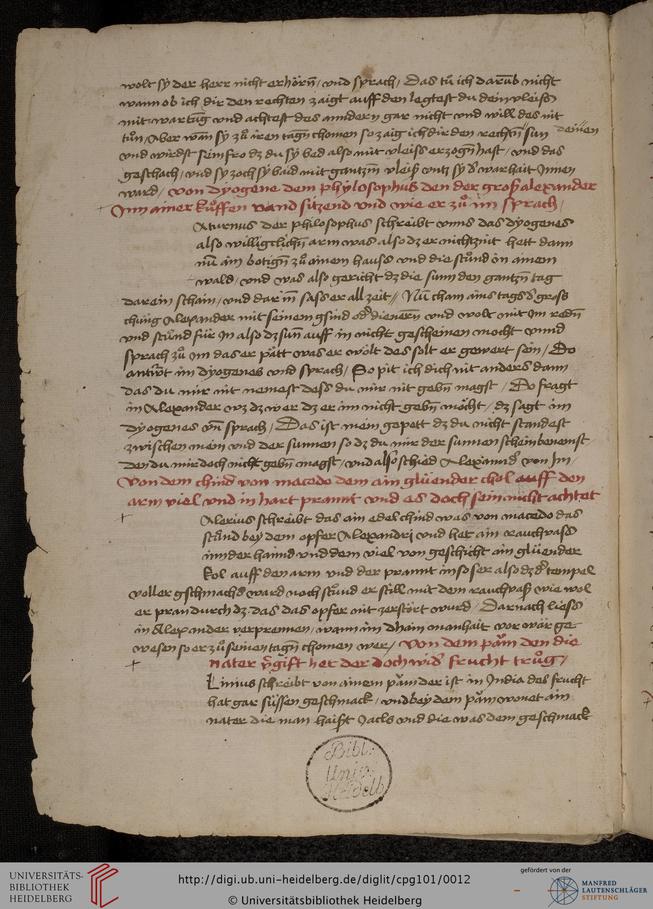 wolt sy der herr nicht erhörn / vnd sprach / Das tů ich darūb nicht
wann ob ich dir den rechten zaigt auff den legtest du dein vleiss
mit wartūg vnd achtest des anndern gar nicht vnd will des nit
tůn / Aber wan̄ sy zů iren tagn̄ chomen so zaig ich dir den rechtn̄ sun deinen
vnd wirdst sein fro dz du sy bed also mit vleiss erzogn̄ hast / vnd das
geschach / vnd sy zoch sy baid mit gantzm̄ vleiß vntz sy d' warhait Innen
ward / von dyogene dem phylosophus den der groß alexander
Inn ainer kůffen vand sitzend vnd wie er zů im sprach /
Aturnus der philosophus schreibt vnns das dyogenes
also willigclichn̄ arm was also dz er nichtznit hett dann
nū ain botign̄ zů ainem hauss vnd die stůnd in ainem
wald / vnd was also gericht dz die sunn den gantzn̄ tag
darein schain / vnd dar in̄ sass er all zeit // Nū cham ains tags d' gross
chūnig Alexander mit seinem gsind od' dienern̄ vnd wolt mit Im redn̄
vnd stůnd für In also dz sun̄ auff in nicht gescheinen mocht vnnd
sprach zů Im das er pätt was er wölt des solt er gewert sein / Do
antw̄t im dyogenes vnd sprach / So pit ich dich nit anders dann
das du mir nit nemest dess du mir nit gebn̄ magst / Do fragt
in Alexander wz dz wer dz er im nicht gebn̄ möcht / dz sagt im
dyogenes vn̄ sprach / Das ist mein gepett dz du nicht standest
zwischen mein vnd der sunnen so dz du mir der sunnen schein benemst
den du mir doch nicht gebn̄ magst / vnd also schied Alexannd' von Im /
Von dem chind von macedo dem ain glüender chol auff den
arm viel vnd in hart prannt vnd es doch sein nicht achtet
Alerius schreibt das ain edel chind was von macedo das
stůnd bey dem opfer Alexandri vnd het ain rauchvass
inn der hannd vnd dem viel von geschicht ain glüender
kol auff den arm vnd der prannt in so ser also dz d' tempel
voller gschmachs ward noch stůnd er still mit dem rauchvaß wie wol
er pran durch dz / das das opfer nit zerstört wurd / Darnach liess
in Alexander verprennen / wann im dhain manhait vor wär ge
wesen so er zů seinen tagn̄ chomen wer / Von dem pām den die
nater v'gift het der doch wid' frucht trůg /
Linius schreibt von ainem pām der ist in India des frucht
hat gar süssen geschmack / vnd bey dem pām wonet ain
nater die man haißt Jacls vnd die was dem geschmack
Bibl:
Univ.
Heidelb
UNIVERSITÄTS-
BIBLIOTHEK
HEIDELBERG
http://digi.ub.uni-heidelberg.de/diglit/cpg101/0012
© Universitätsbibliothek Heidelberg
gefördert von der
MANFRED
LAUTENSCHLÄGER
STIFTUNG